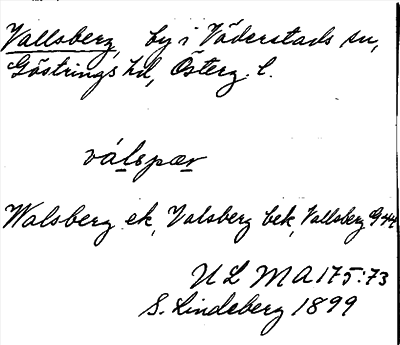 Vallsberg, by i Väderstads sn,
Göstrings hd, Österg. l.
válspær
Walsberg ek, Valsberg bek, Vallsberg G 44
ULMA 175:73
S. Lindeberg 1899